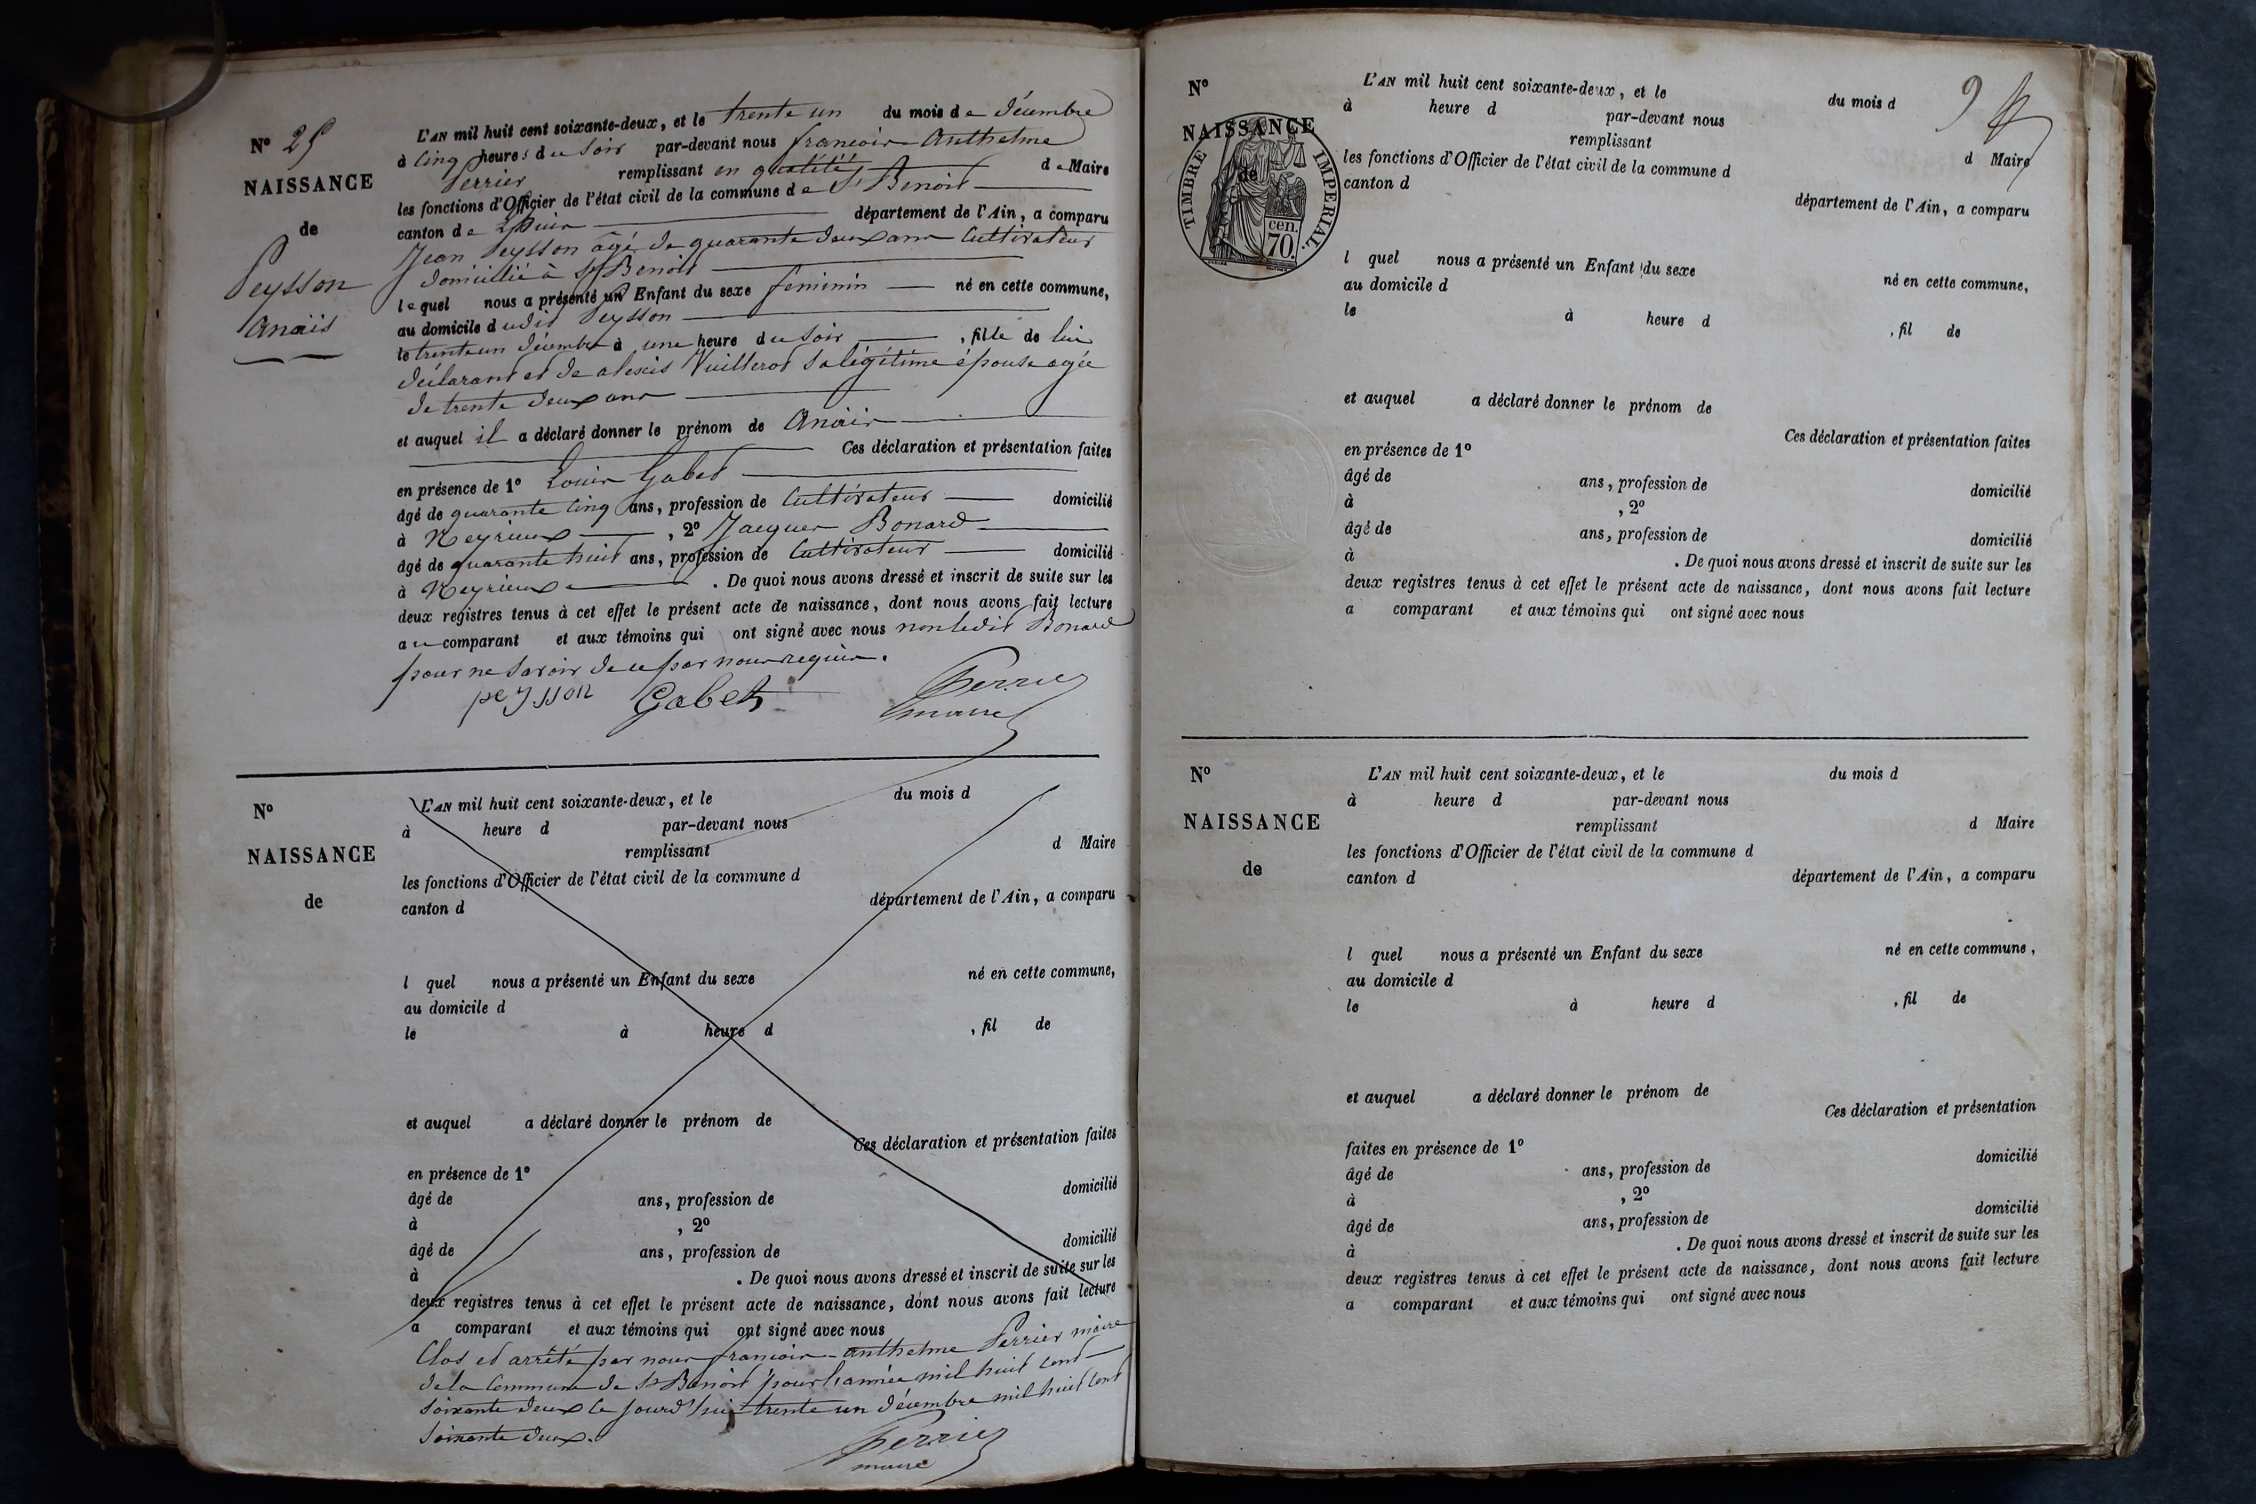 N° 25
NAISSANCE
de
Peysson
Anaïs
L'AN mil huit cent soixante-deux, et le trente un du mois de Décembre
à cinq heures du soir par-devant nous françois Anthelme
Perrier remplissant en qualité de Maire
les fonctions d'Officier de l'état civil de la commune de St Benoit
canton de Lhuis département de l'Ain, a comparu
Jean Peysson âgé de quarante deux ans Cultivateur
domicilié à St Benoit
lequel nous a présenté un Enfant du sexe féminin né en cette commune,
au domicile dudit Peysson
le trente un Décembre à une heure du soir, fille de lui
déclarant et de alexis Vuillerod sa légitime épouse agée
de trente deux ans
et auquel il a déclaré donner le prénom de Anaïs
Ces déclaration et présentation faites
en présence de 1° Louis Gabet
âgé de quarante cinq ans, profession de Cultivateur domicilié
à Neyrieux, 2° Jacques Bonard
âgé de quarante huit ans, profession de Cultivateur domicilié
à Neyrieux. De quoi nous avons dressé et inscrit de suite sur les
deux registres tenus à cet effet le présent acte de naissance, dont nous avons fait lecture
au comparant et aux témoins qui ont signé avec nous non ledit Bonard
pour ne savoir de ce par nous requis.
peysson Gabet Perrier
maire
N°
NAISSANCE
de
L'AN mil huit cent soixante-deux, et le du mois d
à heure d par-devant nous
remplissant d Maire
les fonctions d'Officier de l'état civil de la commune d
canton d département de l'Ain, a comparu
l quel nous a présenté un Enfant du sexe né en cette commune,
au domicile d
le à heure d , fil de
et auquel a déclaré donner le prénom de
Ces déclaration et présentation faites
en présence de 1°
âgé de ans, profession de domicilié
à , 2°
âgé de ans, profession de domicilié
à . De quoi nous avons dressé et inscrit de suite sur les
deux registres tenus à cet effet le présent acte de naissance, dont nous avons fait lecture
a comparant et aux témoins qui ont signé avec nous
Clos et arrêté par nous françois anthelme Perrier maire
de la Commune de St Benoit pour l'année mil huit cent
soixante deux ce jourd'hui trente un décembre mil huit cent
soixante deux.
Perrier
maire
9
N°
NAISSANCE
de
TIMBRE IMPERIAL.
cen.
70.
L'AN mil huit cent soixante-deux, et le du mois d
à heure d par-devant nous
remplissant d Maire
les fonctions d'Officier de l'état civil de la commune d
canton d département de l'Ain, a comparu
l quel nous a présenté un Enfant du sexe né en cette commune,
au domicile d
le à heure d , fil de
et auquel a déclaré donner le prénom de
Ces déclaration et présentation faites
en présence de 1°
âgé de ans, profession de domicilié
à , 2°
âgé de ans, profession de domicilié
à . De quoi nous avons dressé et inscrit de suite sur les
deux registres tenus à cet effet le présent acte de naissance, dont nous avons fait lecture
a comparant et aux témoins qui ont signé avec nous
N°
NAISSANCE
de
L'AN mil huit cent soixante-deux, et le du mois d
à heure d par-devant nous
remplissant d Maire
les fonctions d'Officier de l'état civil de la commune d
canton d département de l'Ain, a comparu
l quel nous a présenté un Enfant du sexe né en cette commune,
au domicile d
le à heure d , fil de
et auquel a déclaré donner le prénom de
Ces déclaration et présentation
faites en présence de 1°
âgé de ans, profession de domicilié
à , 2°
âgé de ans, profession de domicilié
à . De quoi nous avons dressé et inscrit de suite sur les
deux registres tenus à cet effet le présent acte de naissance, dont nous avons fait lecture
a comparant et aux témoins qui ont signé avec nous